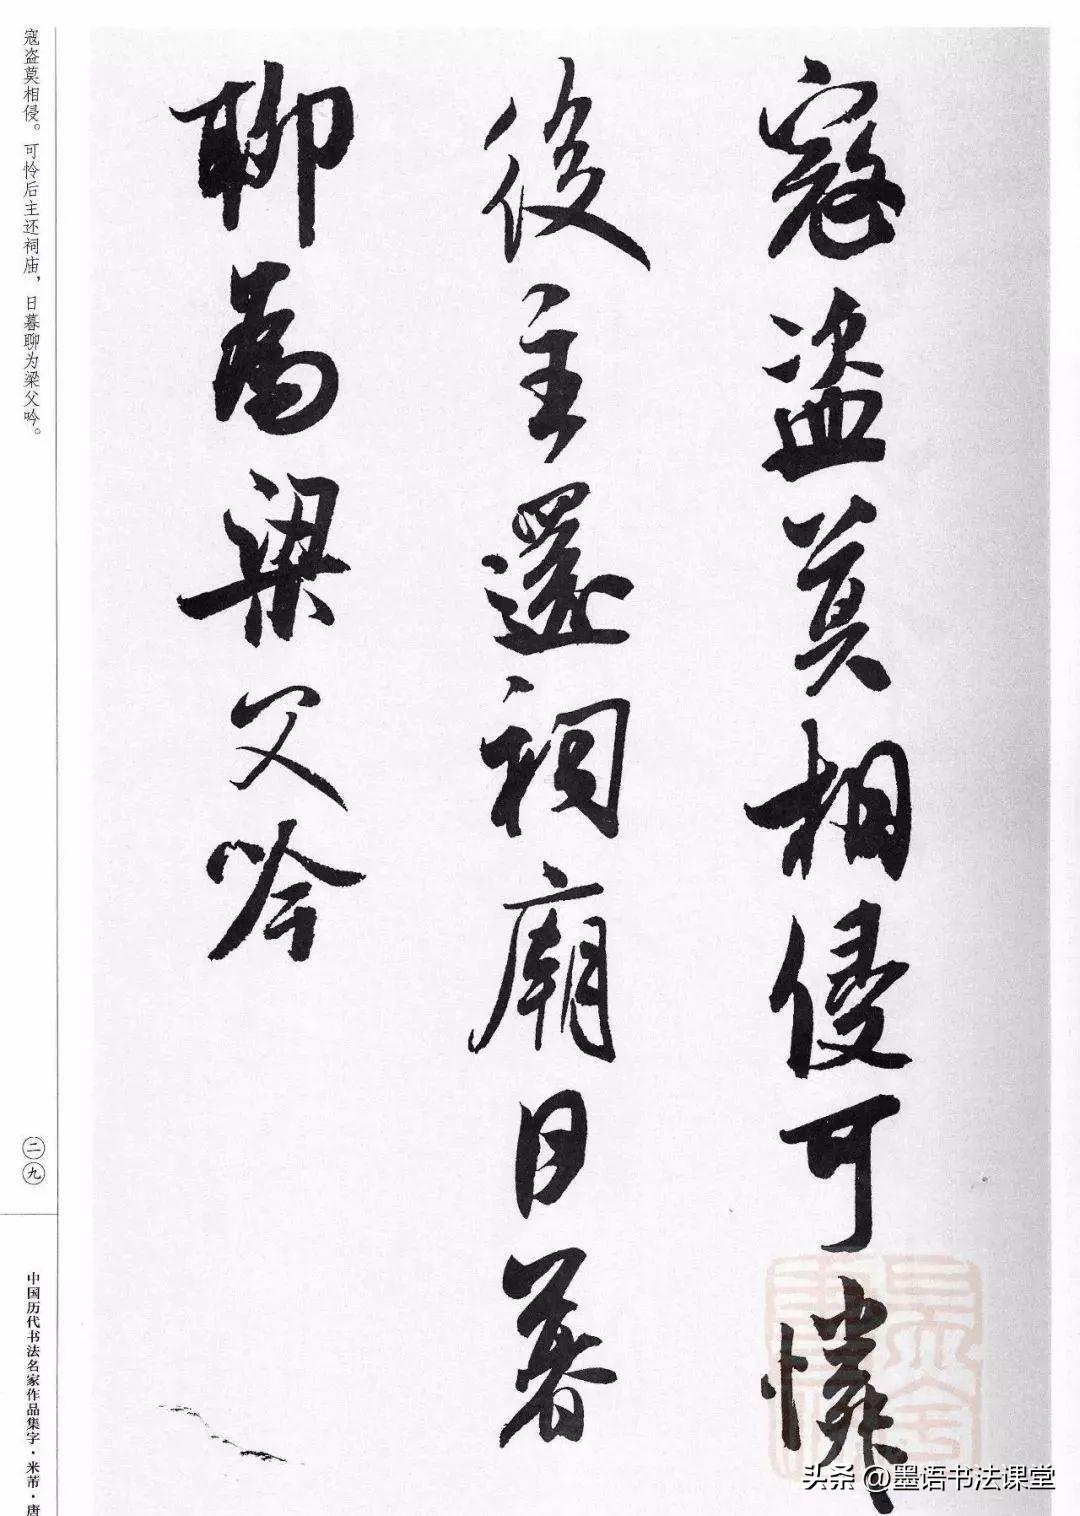 寇盗莫相侵可憐
後主還祠廟日暮
聊為梁父吟
寇盗莫相侵。可怜后主还祠庙，日暮聊为梁父吟。
二九
中国历代书法名家作品集字·米芾·唐
头条 @墨语书法课堂